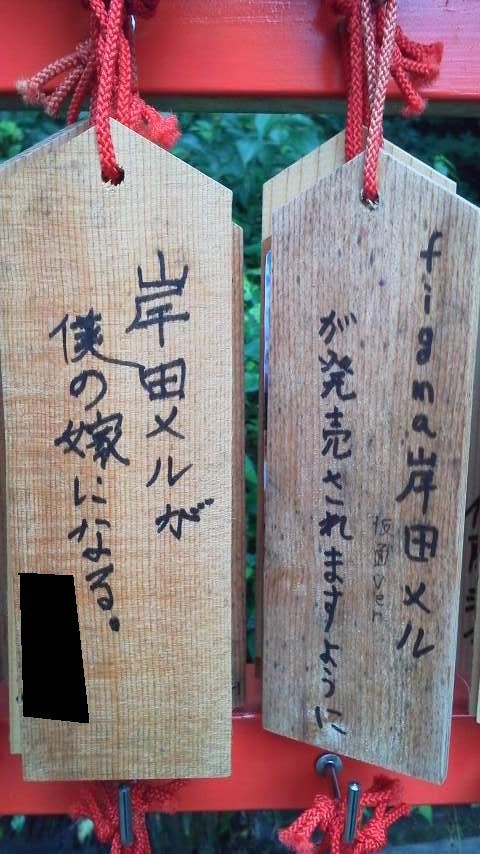 岸田メルが
僕の嫁になる。
figma岸田メル
仮面ver
が発売されますように